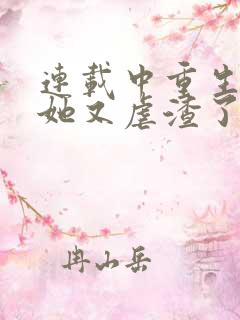 連載中重生
她又虐渣了
冉山岳